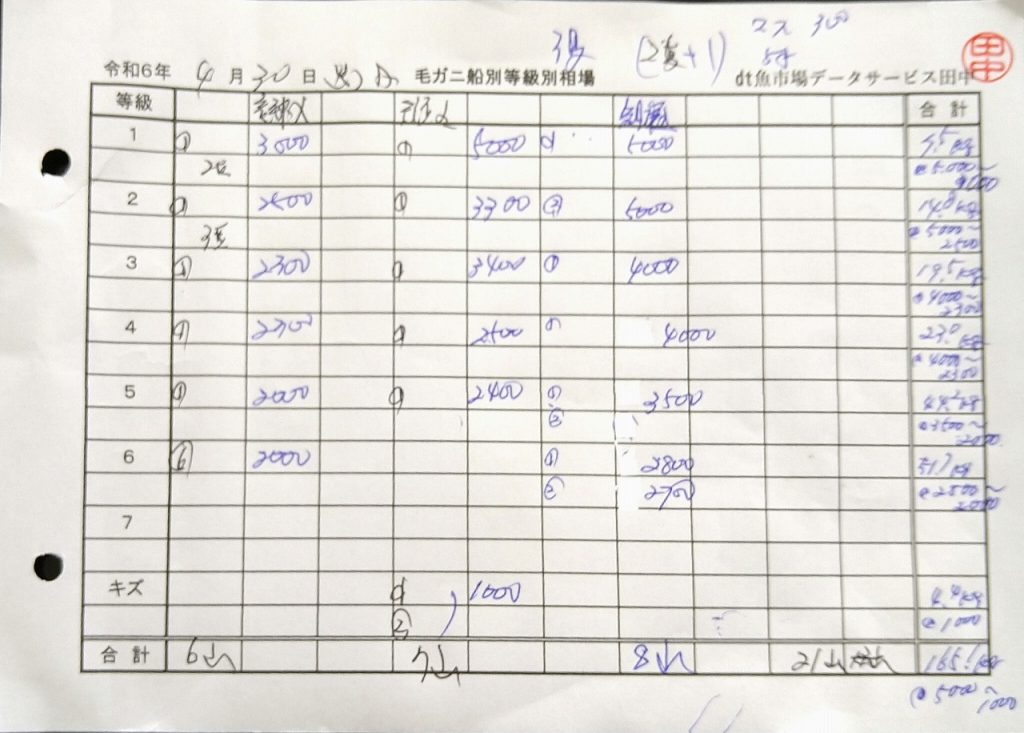 3隻 (2隻+1)
令和6年 4月30日(火) 毛ガニ船別等級別相場 dt魚市場データサービス田中
田中
等級 合計
1 ① 3000 ① 5000 ① 5000
@5000~
2 2500 ① 3300 ② 5000 14.8kg
3隻 @5000~2500
3 ① 2300 ① 3400 ① 4000 19.5kg
@4000~2300
4 ① 2300 ① 2500 ① 4000 23.0kg
@4000~2300
5 ① 2000 ① 2400 ① 3500
② @3500~2000
6 ⑥ 2000 ① 2800 51.7kg
② 2700 @2800~2000
7
キズ 1000 4.4kg
② @1000
合計 6山 7山 8山 21山 165.1kg
@5000~1000